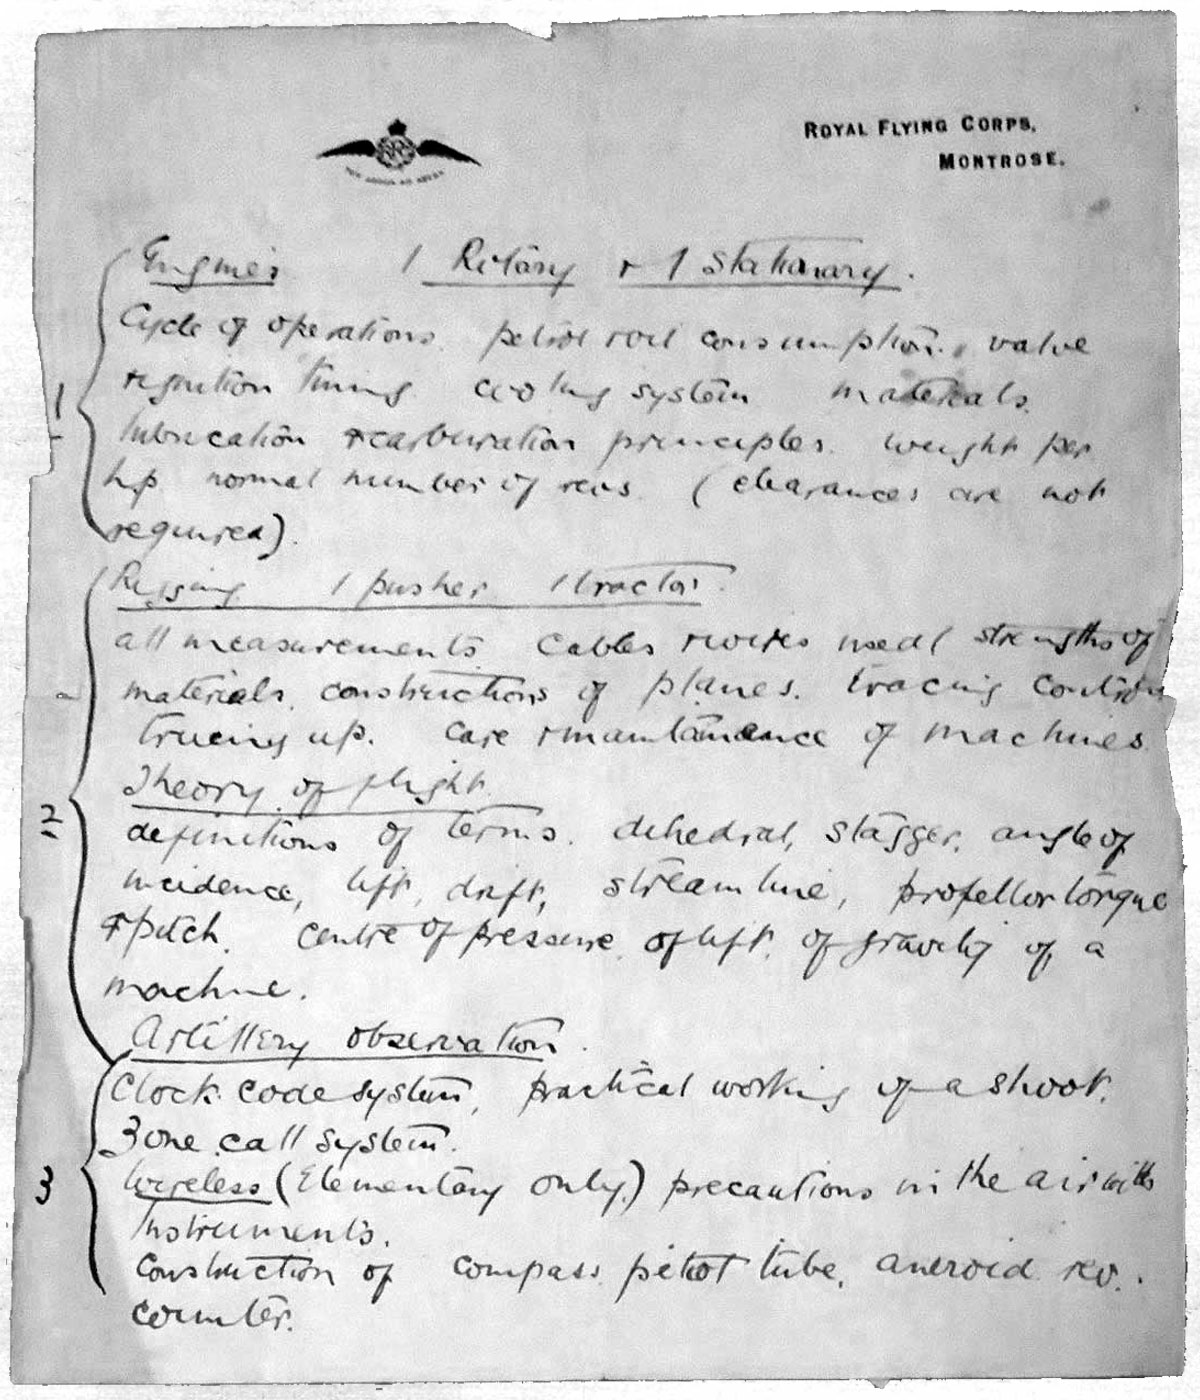 ROYAL FLYING CORPS,
MONTROSE.
Engines 1 Rotary + 1 Stationary.
Cycle of operations. petrol + oil consumption. valve
1
+ ignition timing. cooling system materials.
lubrication + carburation principles. weight per
h.p. normal number of revs. (clearances are not
required).
Rigging 1 pusher 1 tractor.
all measurements. Cables + wires used strengths of
materials. constructions of planes.
trueing up. Care + maintainance of machines
Theory of flight.
2
definitions of terms. dihedral, stagger, angle of
incidence, lift, drift, streamline, propellor torque
+ pitch. centre of pressure. of lift. of gravity of a
machine.
Artillery observation.
Clock code system, practical working of a shoot.
Zone call system.
3
Wireless (Elementary only.) precautions in the air with
Instruments.
Construction of compass. petiot tube. aneroid rev.
counter.